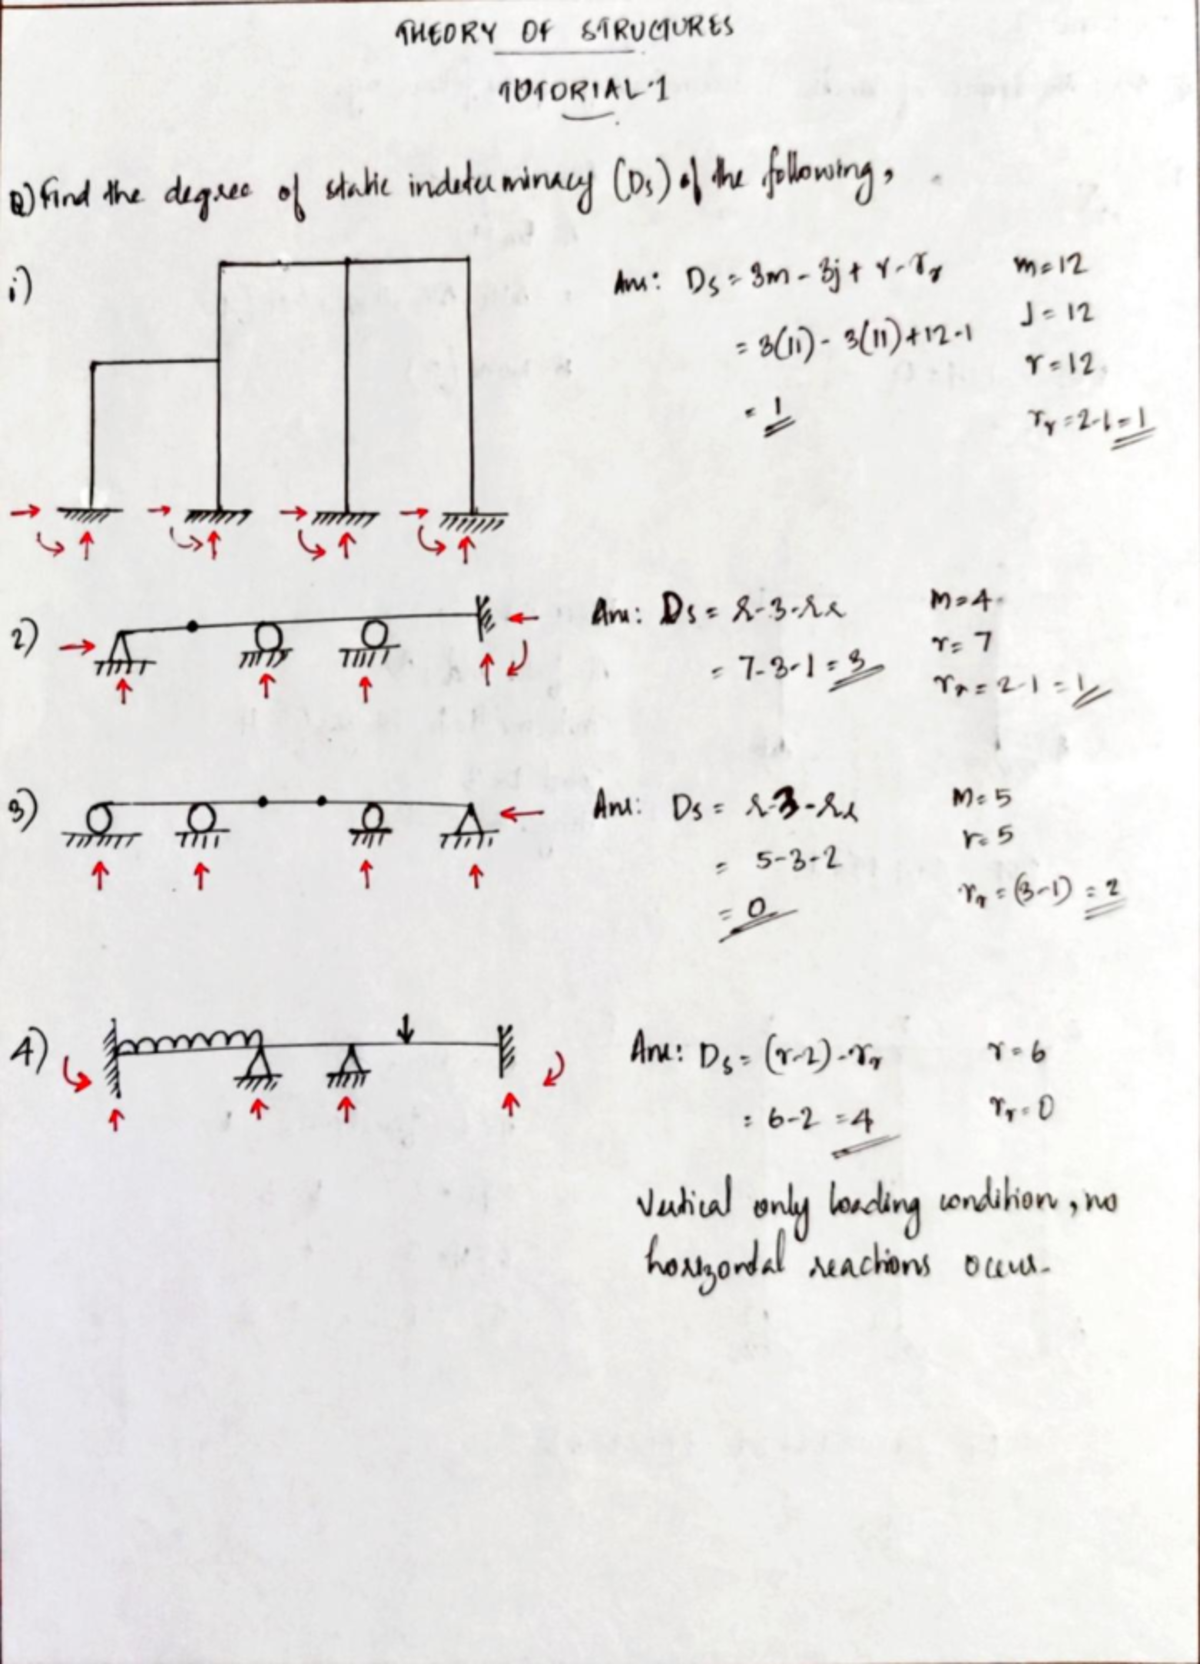 THEORY OF STRUCTURES
TUTORIAL-1
Q) Find the degree of static indeterminacy (Ds) of the following,
1)
Ans: Ds = 3m - 3j + r - rr
m=12
= 3(11) - 3(11)+12-1
J = 12
r=12
= 1
rr = 2-1=1
2)
Ans: Ds = r-3-rr
m=4
= 7-3-1 = 3
r= 7
rr = 2-1 = 1
3)
Ans: Ds = r-3-rr
m=5
r=5
= 5-3-2
rr = (3-1) = 2
= 0
4)
Ans: Ds = (r-2)-rr
r=6
= 6-2 =4
rr=0
Vertical only loading condition, no
horizondal reactions occur.